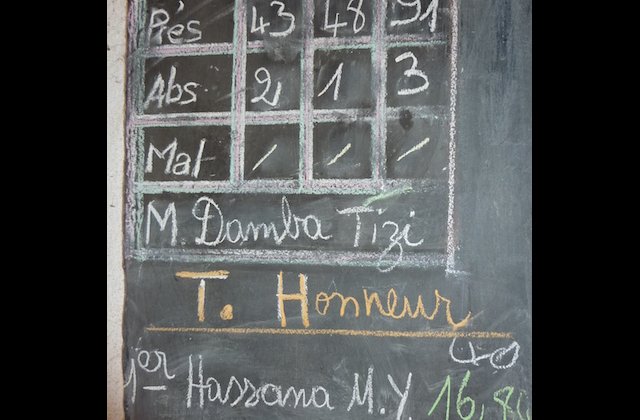 Prés 43 48 91
Abs 2 1 3
Mal / / /
M. Damba Tizi
T. Honneur
1er Hassana M.Y. 16,80